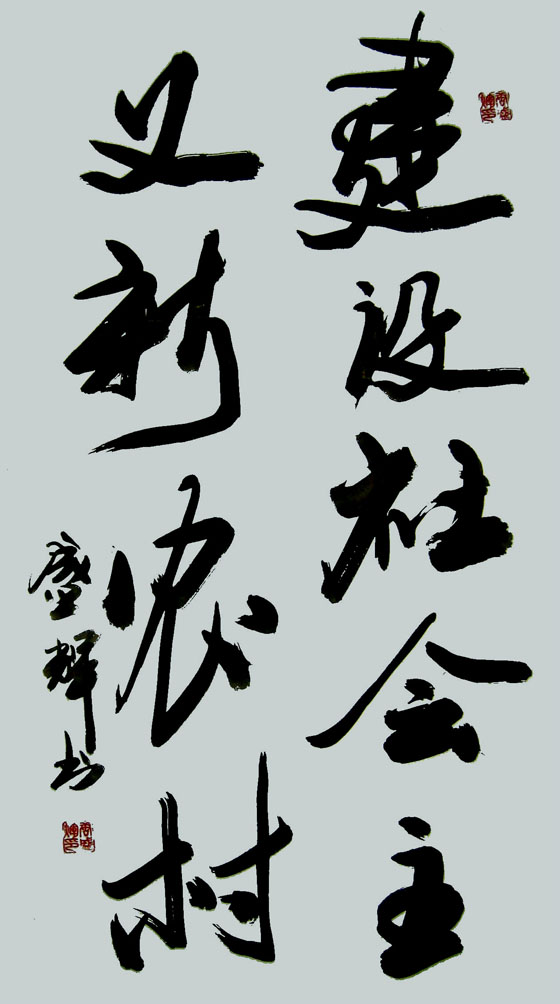 建设社会主
义新农村
盛辉书